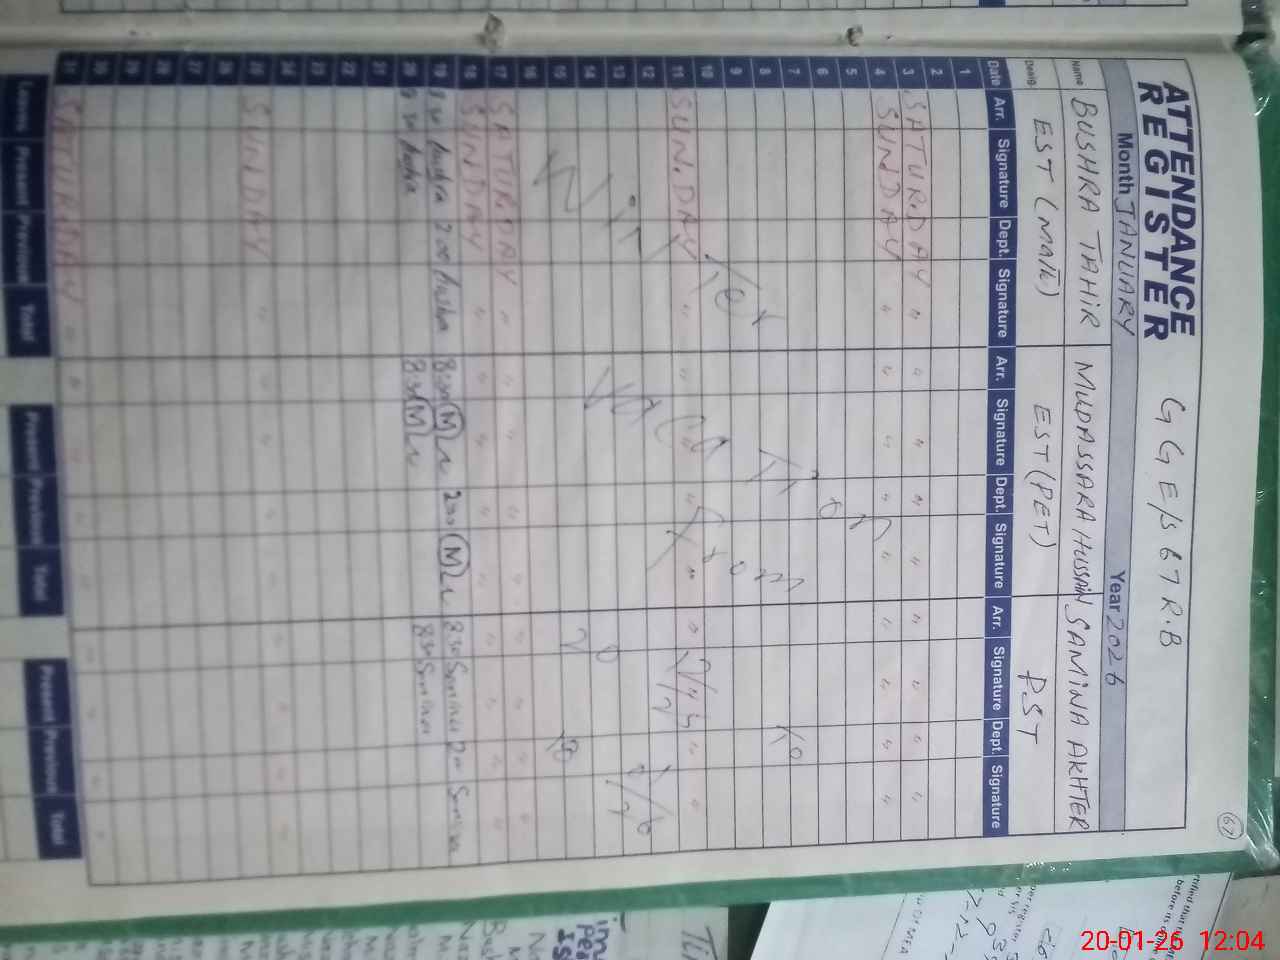 67
ATTENDANCE REGISTER
G G E/S 67 R.B
Month JANUARY Year 2026
Name BUSHRA TAHIR MUDASSARA HUSSAIN SAMINA AKHTER
Desig. EST (Math) EST (PET) PST
Date Arr. Signature Dept. Signature Arr. Signature Dept. Signature Arr. Signature Dept. Signature
1
2
3 SATURDAY " " " " " " " " "
4 SUNDAY " " " " " " " " "
5
6
7
8
9
10
11 SUNDAY " " " " " " "
12
13
14
15
16
17 SATURDAY " " " " " " " " "
18 SUNDAY " " " " " " " " "
19 8 30 bushra 2 00 bushra 8 30 M 2 00 M 8 30 Samina 2 00 Samina
20 8 30 bushra 8 30 M 8 30 Samina
21
22
23
24
25 SUNDAY " " " " " " "
26
27
28
29
30
31 SATURDAY " " " " " " "
Winter Vacation From
to
Leaves Present Previous Total Present Previous Total Present Previous Total
20-01-26 12:04